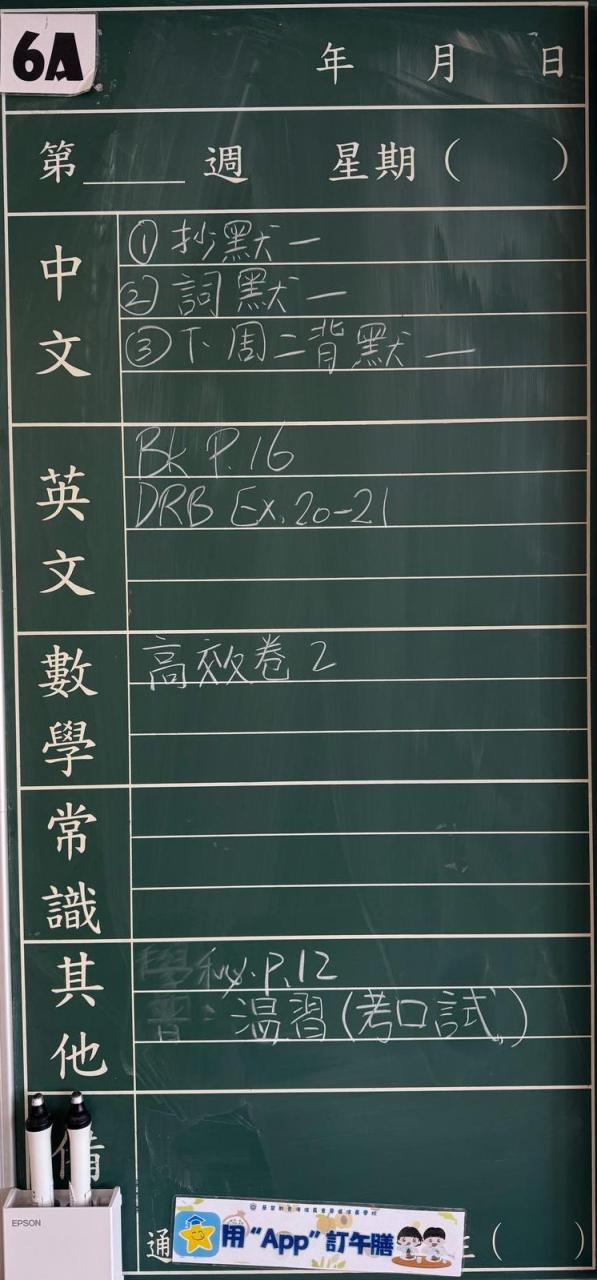 6A
年 月 日
第____週 星期( )
中文
①抄默一
②詞默一
③下周二背默一
英文
Bk P.16
DRB Ex.20-21
數學
高效卷2
常識
其他
學秘.P.12
普: 温習(考口試)
備
EPSON
通
用"App"訂午膳
( )